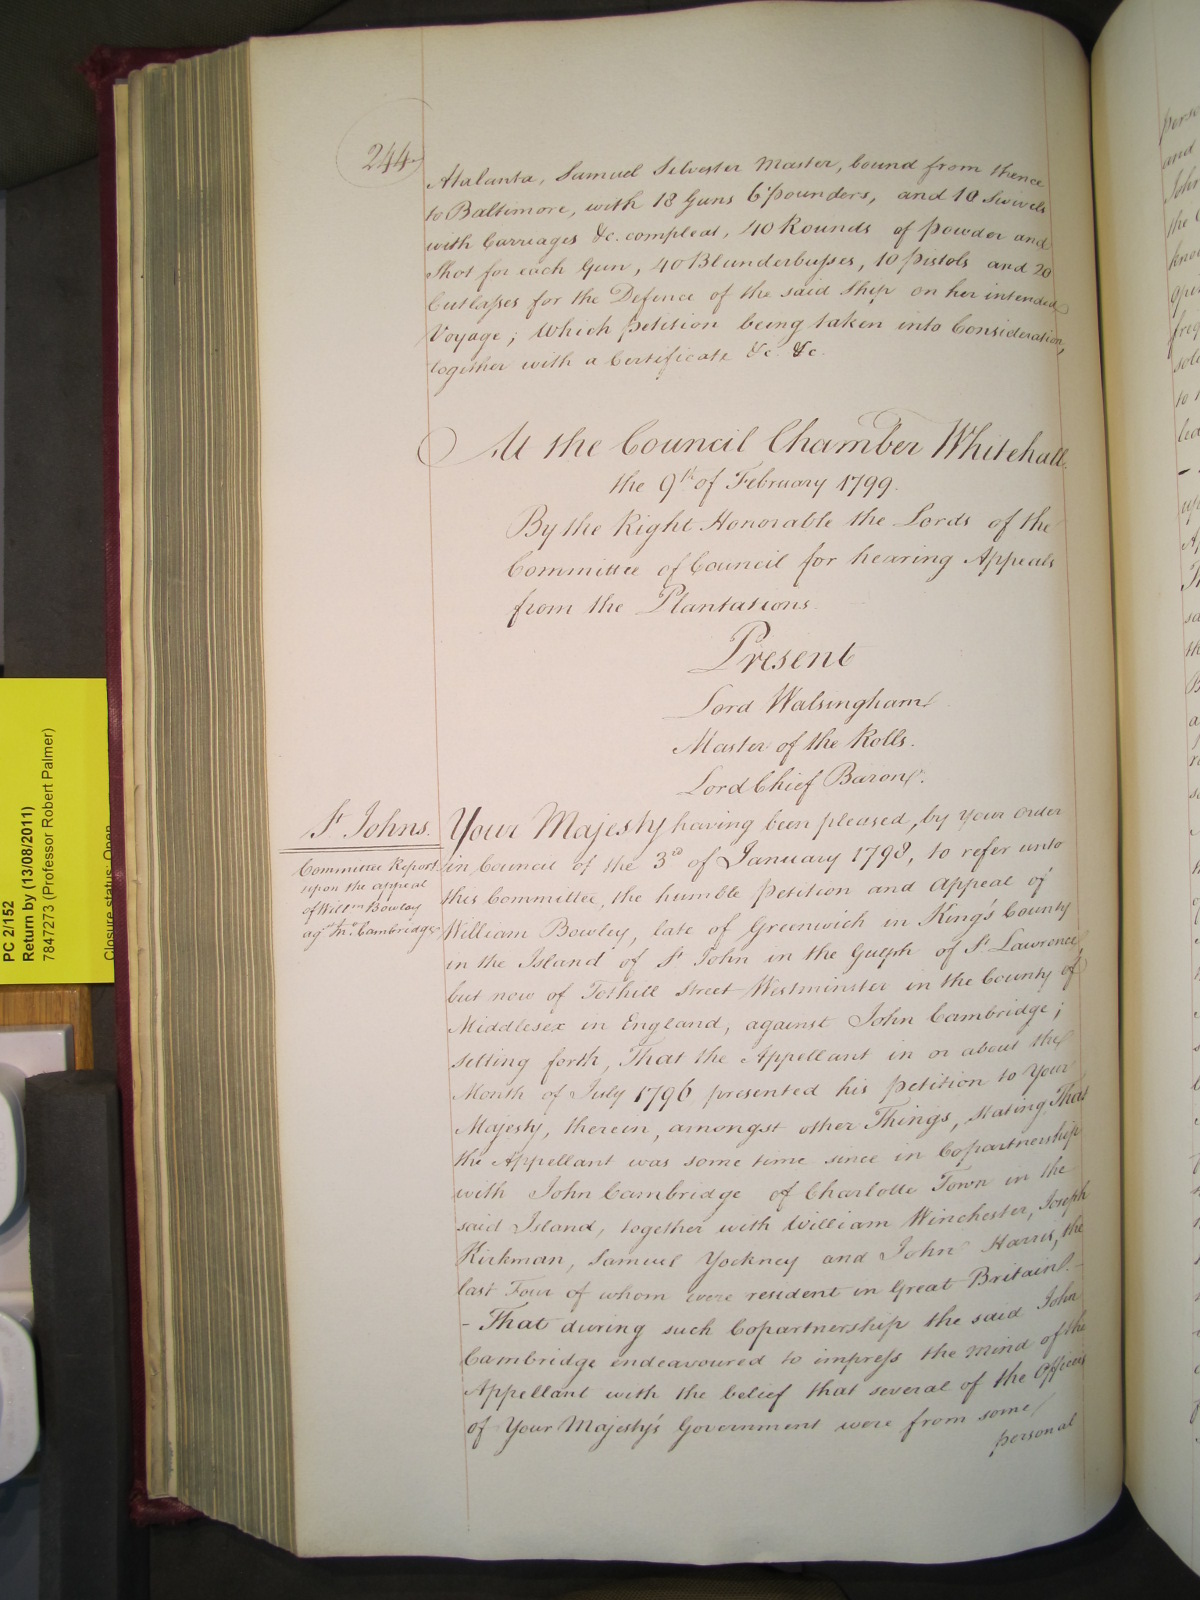 244
Atalanta, Samuel Silvester Master, bound from thence
to Baltimore, with 18 Guns 6 pounders, and 10 Swivels
with Carriages &c. compleat, 40 Rounds of Powder and
Shot for each Gun, 40 Blunderbusses, 10 Pistols and 20
Cutlasses for the Defence of the said Ship on her intended
Voyage; Which petition being taken into Consideration,
together with a Certificate &c. &c.
At the Council Chamber Whitehall
the 9th of February 1799.
By the Right Honorable the Lords of the
Committee of Council for hearing Appeals
from the Plantations.
Present
Lord Walsingham
Master of the Rolls.
Lord Chief Baron.
St Johns.
Committee Report
upon the appeal
of Willm Bowley
agt Jno Cambridge
Your Majesty having been pleased, by Your Order
in Council of the 3rd of January 1798, to refer unto
this Committee, the humble Petition and Appeal of
William Bowley, late of Greenwich in King's County
in the Island of St John in the Gulph of St Lawrence,
but now of Tothill Street Westminster in the County of
Middlesex in England, against John Cambridge;
setting forth, That the Appellant in or about the
Month of July 1796 presented his Petition to Your
Majesty, therein, amongst other Things, stating That
the Appellant was some time since in Copartnership
with John Cambridge of Charlotte Town in the
said Island, together with William Winchester, Joseph
Kirkman, Samuel Yockney and John Harris, the
last Four of whom were resident in Great Britain. -
- That during such Copartnership the said John
Cambridge endeavoured to impress the mind of the
Appellant with the belief that several of the Officers
of Your Majesty's Government were from some
personal
PC 2/152
Return by (13/08/2011)
7847273 (Professor Robert Palmer)
Closure status: Open